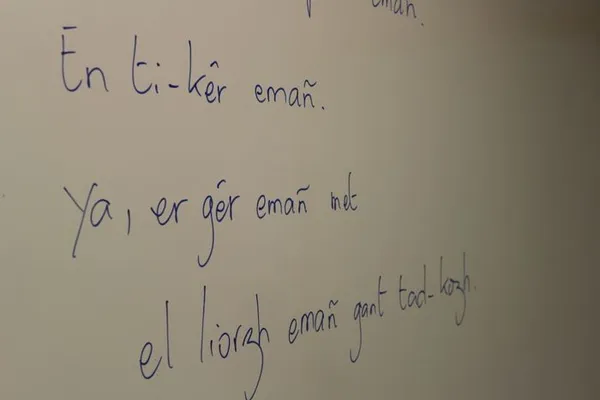 emañ.
En ti-kêr emañ.
Ya, er gêr emañ met
el liorzh emañ gant tad-kozh.